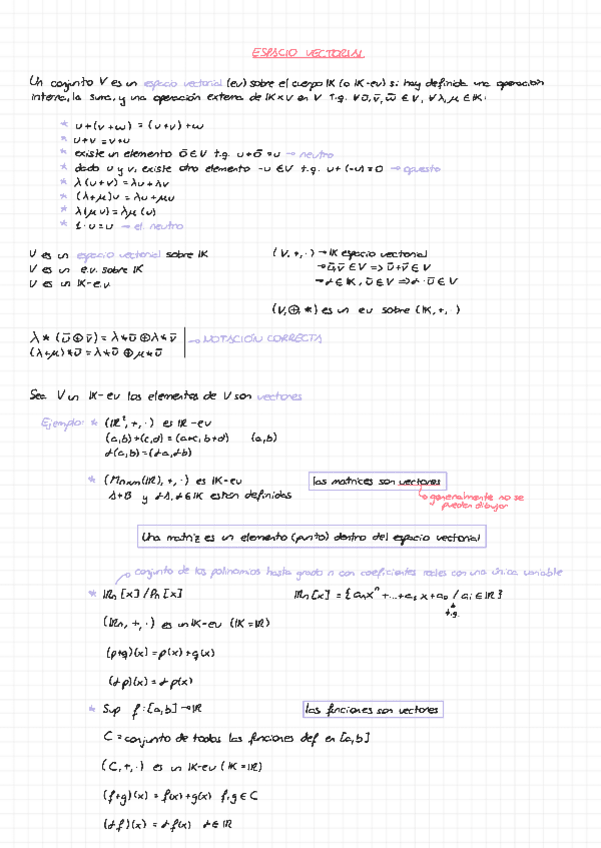 ESPACIO VECTORIAL
Un conjunto V es un espacio vectorial (ev) sobre el cuerpo IK (o IK-ev) si hay definida una operación
interna, la suma, y una operación externa de IK×V en V t.q. ∀ū, v̄, w̄ ∈ V, ∀λ, μ ∈ IK:
* u+(v+w) = (u+v)+w
* u+v = v+u
* existe un elemento ō∈V t.q. u+ō=u → neutro
* dado u y v, existe otro elemento -u ∈ V t.q. u+(-u)=0 → opuesto
* λ(u+v) = λu+λv
* (λ+μ)u = λu+μu
* λ(μu) = λμ(u)
* 1·u = u → el. neutro
V es un espacio vectorial sobre IK
V es un e.v. sobre IK
V es un IK-e.v.
(V,+,·) → IK espacio vectorial
→ ū,v̄ ∈ V => ū+v̄ ∈ V
→ α ∈ IK, ū ∈ V => α·ū ∈ V
(V,⊕,*) es un ev sobre (IK,+,·)
λ * (ū ⊕ v̄) = λ*ū ⊕ λ*v̄ → NOTACIÓN CORRECTA
(λ+μ)*ū = λ*ū ⊕ μ*ū
Sea V un IK-ev los elementos de V son vectores
Ejemplo: * (IR², +, ·) es IR-ev
(a,b)+(c,d) = (a+c, b+d) (a,b)
α(a,b) = (αa, αb)
* (Mnxm(IR), +, ·) es IK-ev
A+B y αA, α∈IK están definidas
las matrices son vectores
→ generalmente no se
pueden dibujar
Una matriz es un elemento (punto) dentro del espacio vectorial
conjunto de los polinomios hasta grado n con coeficientes reales con una única variable
* IRn[x] / Pn[x]
IRn[x] = {anxⁿ+...+a₁x+a₀ / ai ∈ IR}
t.q.
(IRn, +, ·) es un IK-ev (IK=IR)
(p+q)(x) = p(x)+q(x)
(αp)(x) = αp(x)
* Sup f:[a,b]→IR
las funciones son vectores
C = conjunto de todas las funciones def en [a,b]
(C,+,·) es un IK-ev (IK=IR)
(f+g)(x) = f(x)+g(x) f,g ∈ C
(αf)(x) = αf(x) α∈IR